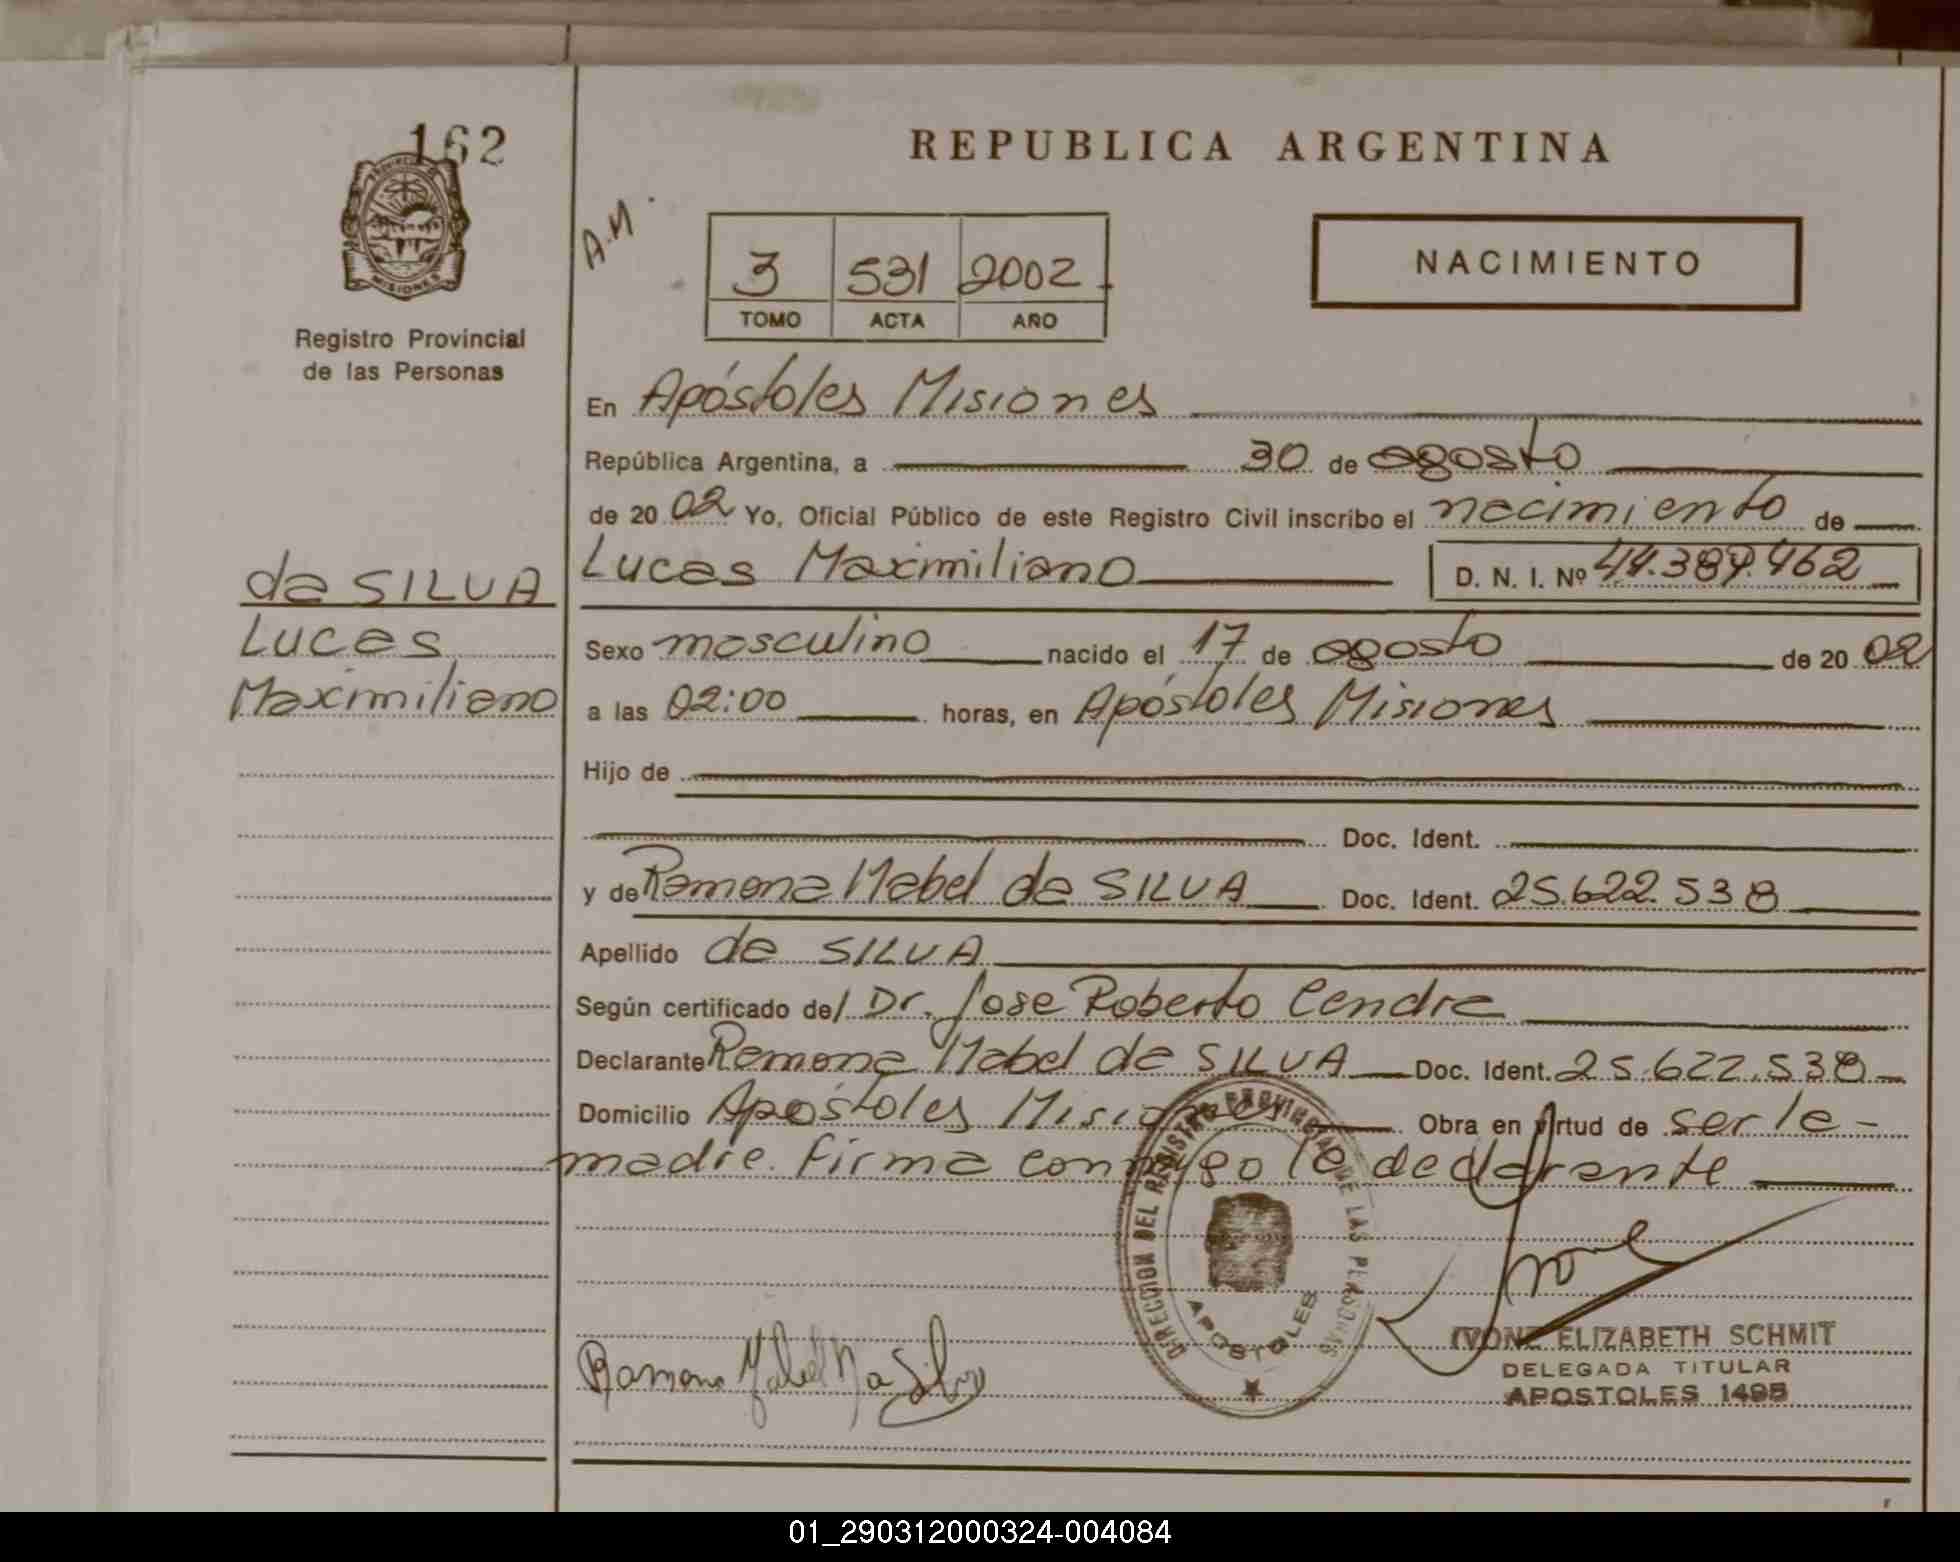 162
REPUBLICA ARGENTINA
A.M.
NACIMIENTO
3 531 2002
TOMO ACTA AÑO
PROVINCIA DE
MISIONES
Registro Provincial
de las Personas
En Apóstoles Misiones
República Argentina, a 30 de agosto
de 20 02 Yo, Oficial Público de este Registro Civil inscribo el nacimiento de
Lucas Maximiliano D. N. I. Nº 44.387.462
da SILVA
Lucas
Maximiliano
Sexo masculino nacido el 17 de agosto de 20 02
a las 02:00 horas, en Apóstoles Misiones
Hijo de
Doc. Ident.
y de Ramona Mabel da SILVA Doc. Ident. 25.622.538
Apellido da SILVA
Según certificado del Dr. Jose Roberto Cendra
Declarante Ramona Mabel da SILVA Doc. Ident. 25.622.538
Domicilio Apóstoles Misiones Obra en virtud de ser la-
madre. Firma conmigo la declarante
DIRECCION DEL REGISTRO PROVINCIAL DE LAS PERSONAS
APOSTOLES
Ramona Mabel Da Silva
Ivone
IVONE ELIZABETH SCHMIT
DELEGADA TITULAR
APOSTOLES 1495
01_290312000324-004084